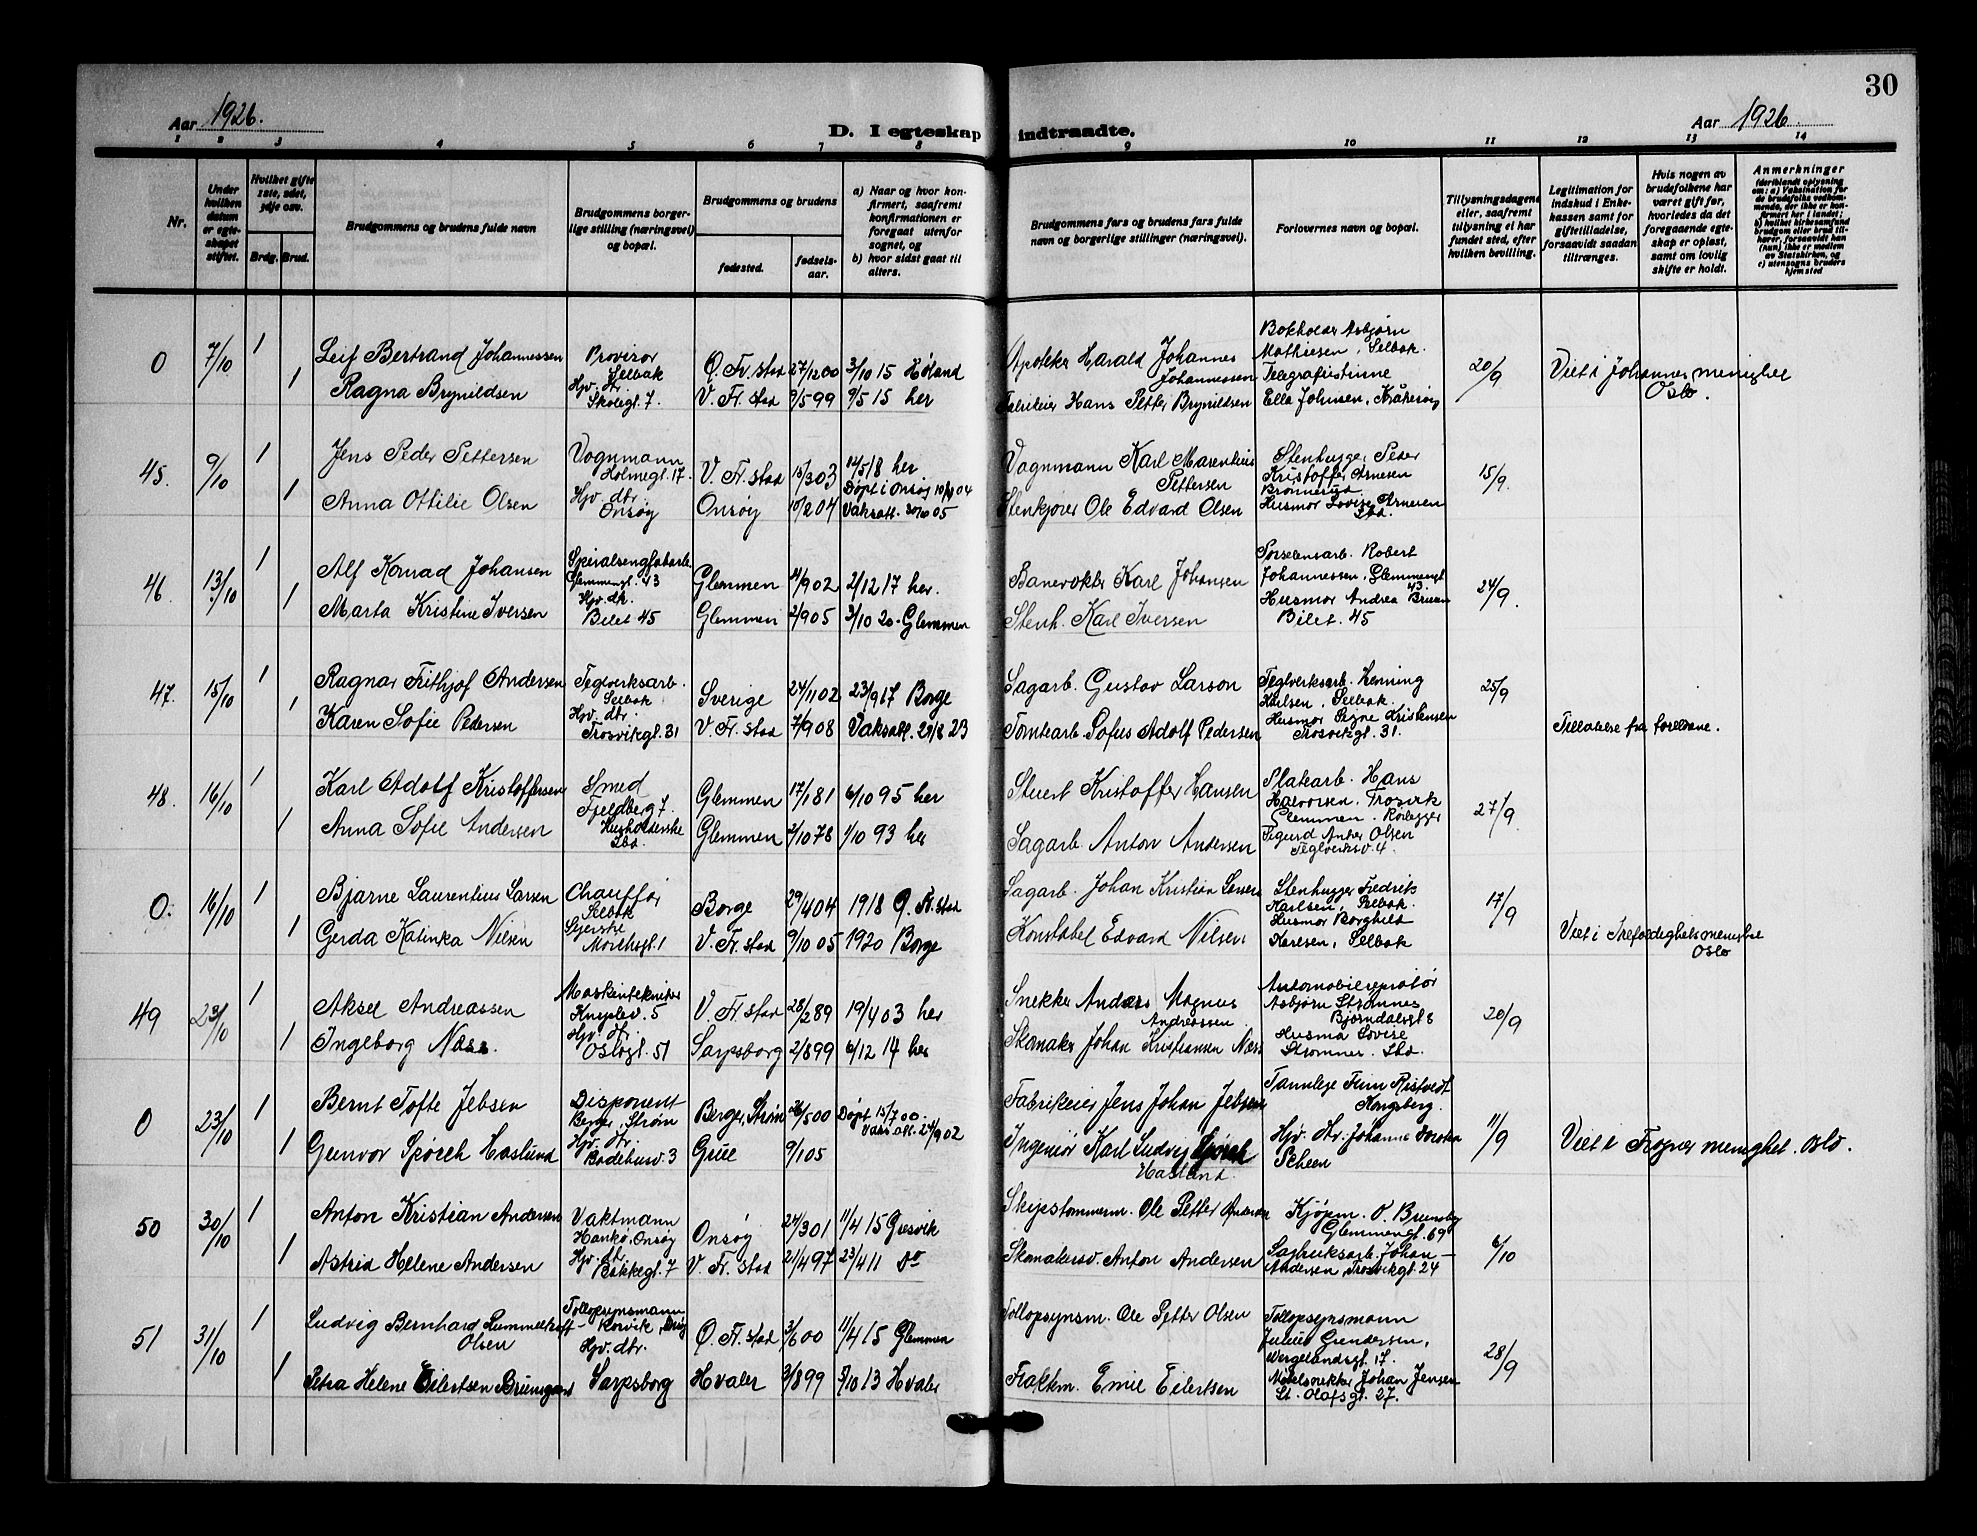 30
Aar 1926.
D. I egteskap indtraadte.
Aar 1926
1 2 3 4 5 6 7 8 9 10 11 12 13 14
Nr.
Under hvilken datum er egteskapet stiftet.
Hvilket gifte 1ste, 2det, 3dje osv.
Brdg. Brud.
Brudgommens og brudens fulde navn
Brudgommens borgerlige stilling (næringsvei) og bopæl.
Brudgommens og brudens
fødested.
fødselsaar.
a) Naar og hvor konfirmert, saafremt konfirmationen er foregaat utenfor sognet, og
b) hvor sidst gaat til alters.
Brudgommens fars og brudens fars fulde navn og borgerlige stillinger (næringsvei).
Forlovernes navn og bopæl.
Tillysningsdagene eller, saafremt tillysning ei har fundet sted, efter hvilken bevilling.
Legitimation for indskud i Enkekassen samt for giftetilladelse, forsaavidt saadan tiltrænges.
Hvis nogen av brudefolkene har været gift før, hvorledes da det foregaaende egteskap er opløst, samt om lovlig skifte er holdt.
Anmerkninger
0 7/10 1 Leif Bertrand Johannessen Provisor Selbak Ø. Fr.stad 27/12 00 3/10 15 Høland Apoteker Harald Johannes Johannessen Bokholder Asbjørn Mathiesen, Selbak. 20/9 Viet i Johannes menighet Oslo.
1 Ragna Brynildsen Hjv. dtr. Skolegt. 7. V. Fr. stad 9/5 99 9/5 15 her Hans Petter Brynildsen Telegrafistinne Ella Johnsen, Kråkerøy
45. 9/10 1 Jens Peder Pettersen Vognmann Holmegt. 17. V. Fr. stad 15/3 03 12/5 18 her. Vognmann Karl Marentius Pettersen Stenhugger Peder Kristoffer Arnesen 15/9.
1 Anna Ottilie Olsen Hjv. dtr. Onsøy Onsøy 10/2 04 Døpt i Onsøy 10/4 04 Vaksatt. 30/10 05 Stenkjører Ole Edvard Olsen Husmor Lovise Arnesen Sbd.
46. 13/10 1 Alf Konrad Johansen Glemmengt. 43 Glemmen 4/9 02 2/12 17 her. Banevokter Karl Johansen Robert Johannessen, Glemmengt 43. 24/9.
1 Marta Kristine Iversen Hjv. dtr. Bilet 45 Glemmen 2/9 05 3/10 20. Glemmen Stenh. Karl Iversen Husmor Andrea Bilet. 45
47. 15/10 1 Ragnar Frithjof Andersen Teglverksarb. Selbak Sverige 24/11 02 23/9 17 Borge Sagarb. Gustav Larson Teglverksarb. Henning Karlsen, Selbak. 25/9
1 Karen Sofie Pedersen Hjv. dtr. Trosvikgt. 31 V. Fr. stad 7/9 08 Vaksatt. 29/8 23 Tomtearb. Sofus Adolf Pedersen Husmor Signe Kristensen Trosvikgt. 31. Tillatelse fra foreldrene.
48. 16/10 1 Karl Adolf Kristoffersen Smed Fjeldberg 7. Glemmen 17/1 81 6/10 95 her Stuert Kristoffer Hansen Platearb. Hans Halvorsen, Trosvik Glemmen. 27/9.
1 Anna Sofie Andersen Husholderske Sbd. Glemmen 2/10 78 1/10 93 her Sagarb. Anton Andersen Rørlegger Sigurd Anker Olsen Teglverksv. 4.
0. 16/10 1 Bjarne Laurentius Larsen Chauffør Selbak Borge 29/4 04 1918 Ø. Fr. stad Sagarb. Johan Kristian Larsen Stenhugger Fredrik Karlsen, Selbak. 17/9
1 Gerda Kalinka Nilsen V. Fr. stad 9/10 05 1920 Borge Konstabel Edvard Nilsen Husmor Borghild Karlsen, Selbak Viet i Trefoldighets menighet Oslo
49 23/10 1 Aksel Andreassen Maskintekniker V. Fr. stad 28/2 89 19/4 03 her Snekker Anders Magnus Andreassen. Automobilreparatør Asbjørn Strømnes Bjørndalsgt 8 20/9
1 Ingeborg Næss. Hjv. dtr. Oslogt. 51 Sarpsborg 2/8 99 6/12 14 her Skomaker Johan Kristiansen Næss Husmor Lovise Strømnes. Sbd.
0 23/10 1 Bernt Tofte Jebsen Disponent Berger, Strøm Berger, Strøm 26/5 00 Døpt 15/7 00. Vaks.att. 24/9 02 Fabrikeier Jens Johan Jebsen Tannlege Finn Ristvedt Kongsberg. 11/9
1 Gunvor Spörck Haslund Hjv. dtr. Badehusv. 3 Grue 9/1 05 Ingeniør Karl Ludvig Haslund. Hjv. dtr. Johanne Scheen Viet i Frogner menighet. Oslo.
50 30/10 1 Anton Kristian Andersen Vaktmann Hankø, Onsøy Onsøy 24/3 01 11/4 15 Gresvik Skipstømmerm. Ole Petter Andersen Kjøpm. O. Brunsby Glemmengt. 69 6/10
1 Astrid Helene Andersen Hjv. dtr. Bakkegt. 7 V. Fr. stad 21/4 97 23/4 11 do Anton Andersen Sagbruksarb. Johan Andersen, Trosvikgt. 24
51 31/10 1 Ludvig Bernhard Rummelhoff Olsen Tollopsynsmann Ø. Fr. stad 3/6 00 11/4 15 Glemmen Tollopsynsm. Ole Petter Olsen Tollopsynsmann Julius Gundersen, Wergelandsgt. 17. 28/9
1 Petra Helene Eilertsen Hjv. dtr. Sarpsborg Hvaler 3/8 99 5/10 13 Hvaler Fraktm. Emil Eilertsen Møbelsnekker Johan Jensen St. Olafsgt. 27.